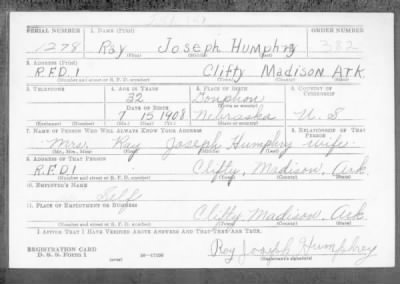 SERIAL NUMBER 1. NAME (Print) ORDER NUMBER
1278 Ray Joseph Humphry 382
(First) (Middle) (Last)
2. ADDRESS (Print)
R.F.D.1 Clifty Madison Ark.
(Number and street or R. F. D. number) (Town) (County) (State)
3. TELEPHONE 4. AGE IN YEARS 5. PLACE OF BIRTH 6. COUNTRY OF CITIZENSHIP
32
DATE OF BIRTH (Town or county)
7 15 1908 Nebraska U. S
(Exchange) (Number) (Mo.) (Day) (Yr.) (State or country)
7. NAME OF PERSON WHO WILL ALWAYS KNOW YOUR ADDRESS 8. RELATIONSHIP OF THAT PERSON
Mrs. Ray Joseph Humphry wife
(Mr., Mrs., Miss) (First) (Middle) (Last)
9. ADDRESS OF THAT PERSON
R.F.D.1 Clifty, Madison, Ark
(Number and street or R. F. D. number) (Town) (County) (State)
10. EMPLOYER'S NAME
Self
11. PLACE OF EMPLOYMENT OR BUSINESS
Clifty Madison, Ark.
(Number and street or R. F. D. number) (Town) (County) (State)
I AFFIRM THAT I HAVE VERIFIED ABOVE ANSWERS AND THAT THEY ARE TRUE.
REGISTRATION CARD
D. S. S. FORM 1 (over) 16-17105 Roy Joseph Humphrey
(Registrant's signature)